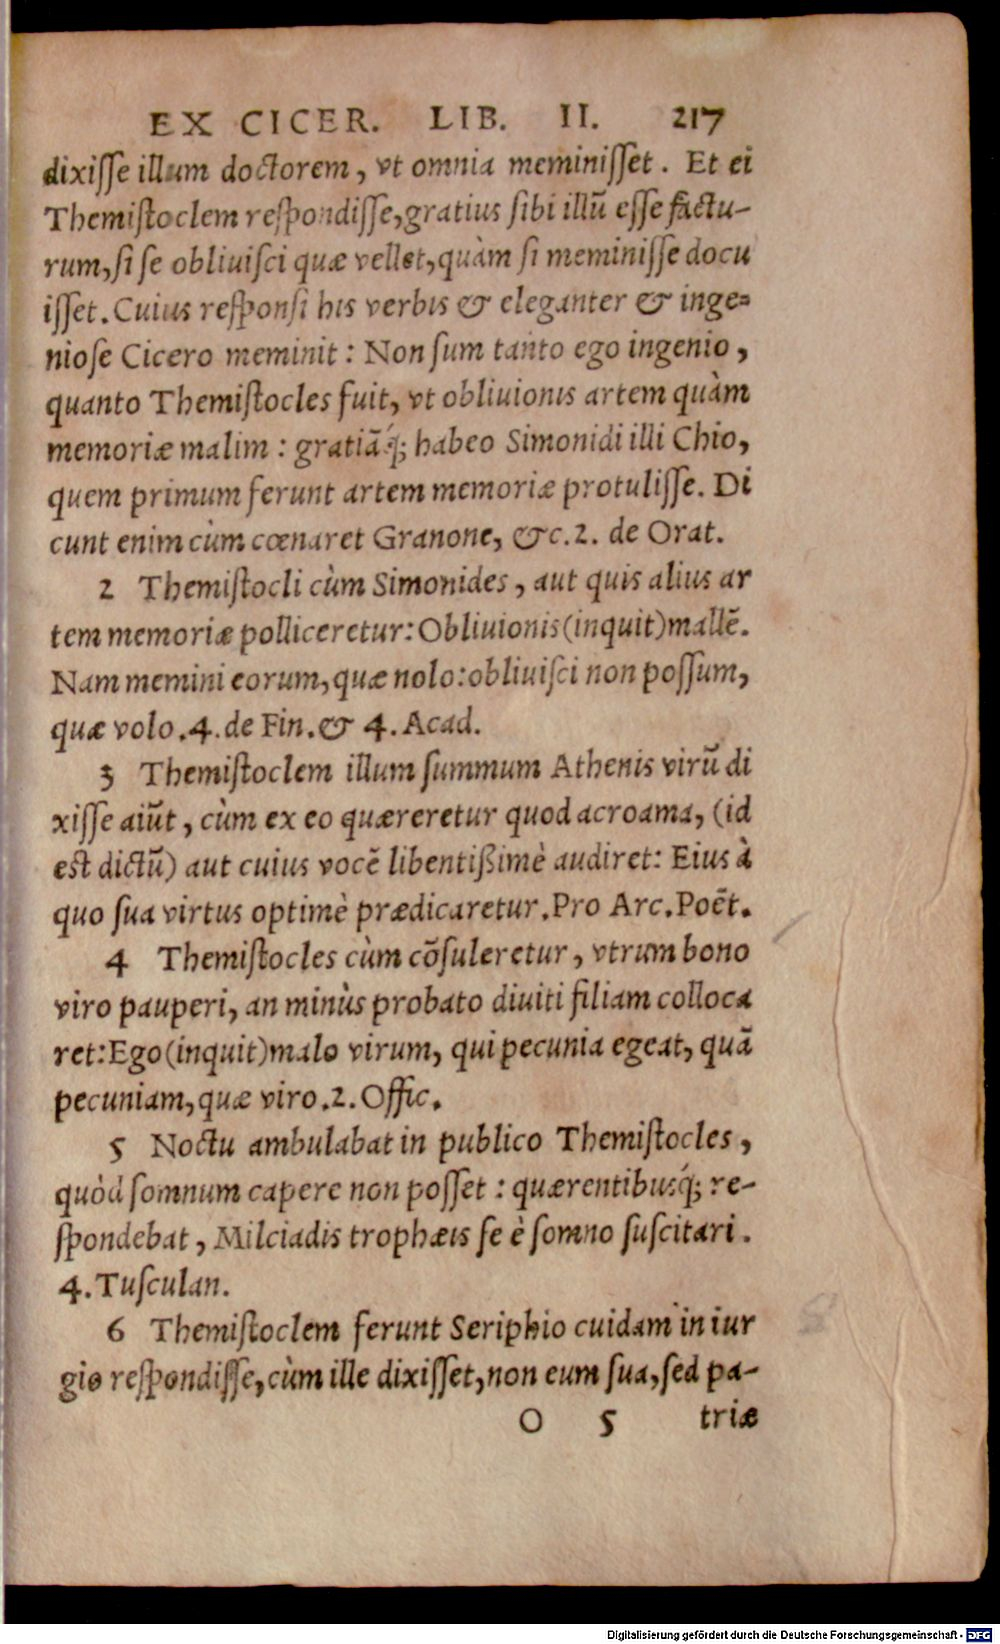 EX CICER. LIB. II. 217
dixiſſe illum doctorem, vt omnia meminiſſet. Et ei
Themiſtoclem reſpondiſſe, gratius ſibi illũ eſſe factu-
rum, ſi ſe obliuiſci quæ vellet, quàm ſi meminiſſe docu
iſſet. Cuius reſponſi his verbis & eleganter & inge=
nioſe Cicero meminit: Non ſum tanto ego ingenio,
quanto Themiſtocles fuit, vt obliuionis artem quàm
memoriæ malim: gratiãq́; habeo Simonidi illi Chio,
quem primum ferunt artem memoriæ protuliſſe. Di
cunt enim cùm cœnaret Granone, &c. 2. de Orat.
2 Themiſtocli cùm Simonides, aut quis alius ar
tem memoriæ polliceretur: Obliuionis (inquit) mallẽ.
Nam memini eorum, quæ nolo: obliuiſci non poſſum,
quæ volo. 4. de Fin. & 4. Acad.
3 Themiſtoclem illum ſummum Athenis virũ di
xiſſe aiũt, cùm ex eo quæreretur quod acroama, (id
est dictũ) aut cuius vocẽ libentißimè audiret: Eius à
quo ſua virtus optimè prædicaretur. Pro Arc. Poẽt.
4 Themiſtocles cùm cõſuleretur, vtrum bono
viro pauperi, an minùs probato diuiti filiam colloca
ret: Ego (inquit) malo virum, qui pecunia egeat, quã
pecuniam, quæ viro. 2. Offic.
5 Noctu ambulabat in publico Themiſtocles,
quòd ſomnum capere non poſſet: quærentibusq́; re-
ſpondebat, Milciadis trophæis ſe è ſomno ſuſcitari.
4. Tuſculan.
6 Themiſtoclem ferunt Seriphio cuidam in iur
gio reſpondiſſe, cùm ille dixiſſet, non eum ſua, ſed pa-
O 5 triæ
Digitalisierung gefördert durch die Deutsche Forschungsgemeinschaft - DFG